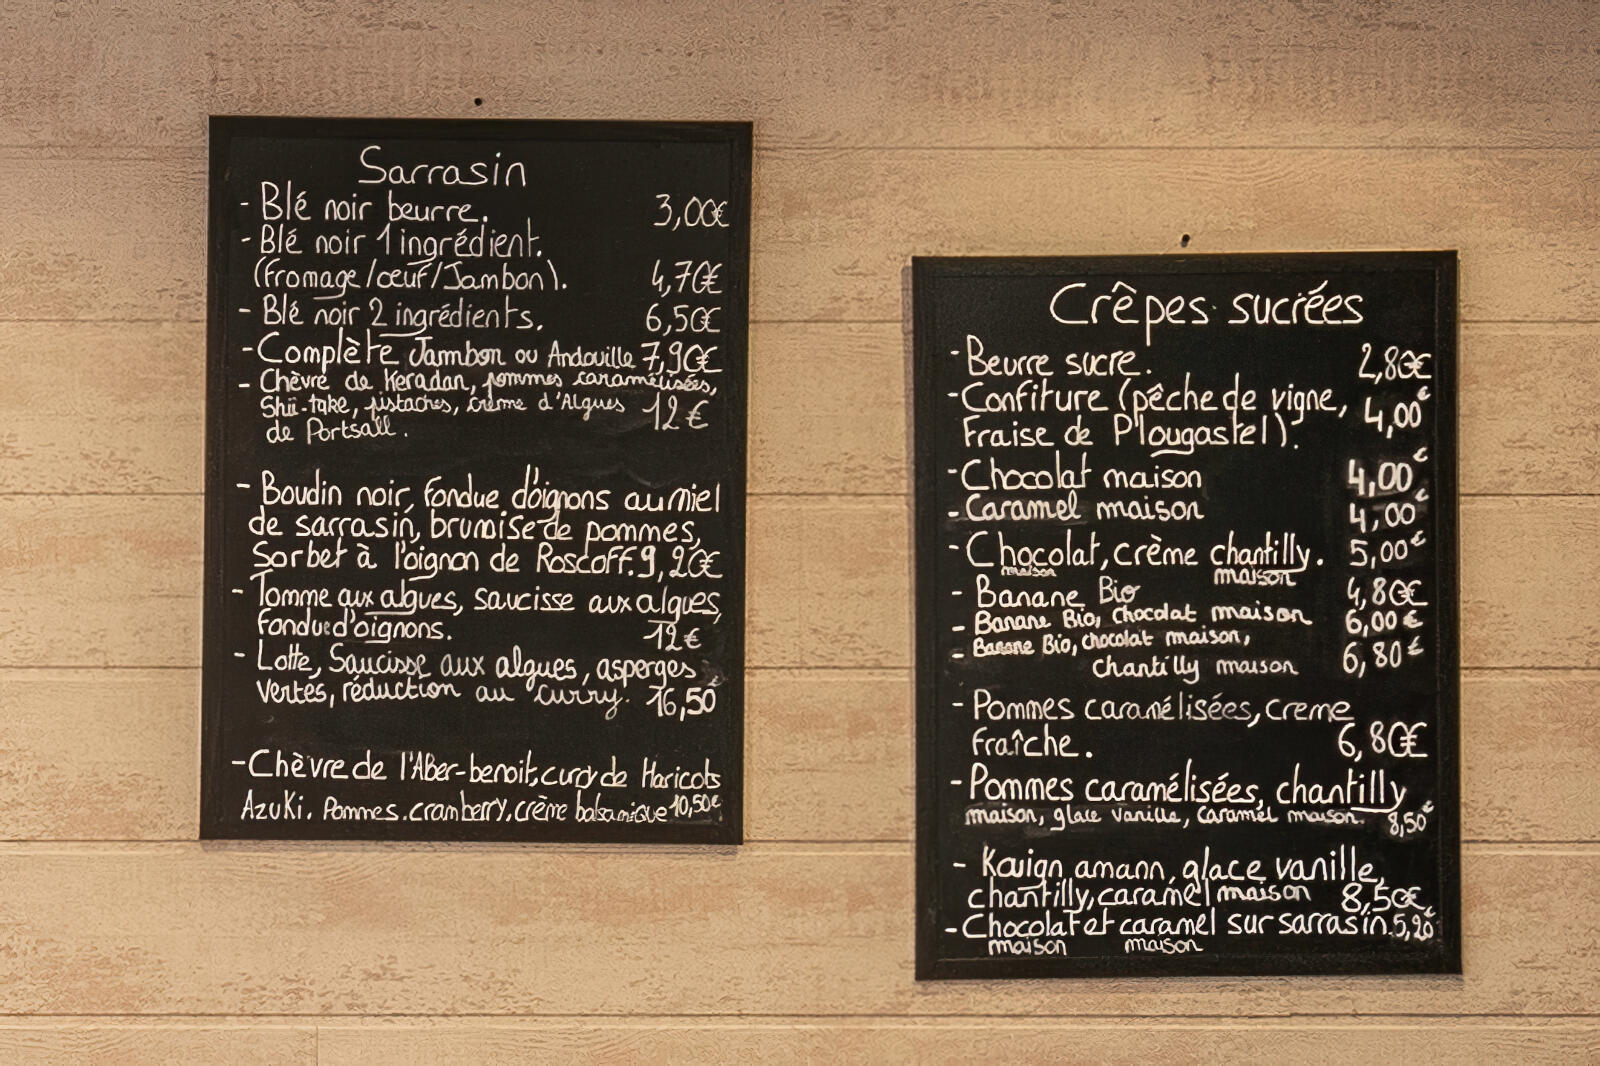 Sarrasin
- Blé noir beurre. 3,00€
- Blé noir 1 ingrédient.
(Fromage/œuf/Jambon). 4,70€
- Blé noir 2 ingrédients. 6,50€
- Complète Jambon ou Andouille 7,90€
- Chèvre de Keradan, pommes caramélisées,
Shii-take, pistaches, crème d'Algues 12€
de Portsall.
- Boudin noir, fondue d'oignons au miel
de sarrasin, brunoise de pommes,
Sorbet à l'oignon de Roscoff. 9,20€
- Tomme aux algues, saucisse aux algues,
fondue d'oignons. 12€
- Lotte, Saucisse aux algues, asperges
vertes, réduction au curry. 16,50€
- Chèvre de l'Aber-benoit, curry de Haricots
Azuki. Pommes. cramberry. crème balsamique 10,50€
Crêpes sucrées
- Beurre sucre. 2,80€
- Confiture (pêche de vigne, 4,00€
Fraise de Plougastel).
- Chocolat maison 4,00€
- Caramel maison 4,00€
- Chocolat, crème chantilly. 5,00€
maison maison
- Banane Bio 4,80€
- Banane Bio, chocolat maison 6,00€
- Banane Bio, chocolat maison,
chantilly maison 6,80€
- Pommes caramélisées, creme
fraîche. 6,80€
- Pommes caramélisées, chantilly
maison, glace vanille, caramel maison. 8,50€
- Kouign amann, glace vanille,
chantilly, caramel maison 8,50€
- Chocolat et caramel sur sarrasin. 5,20€
maison maison